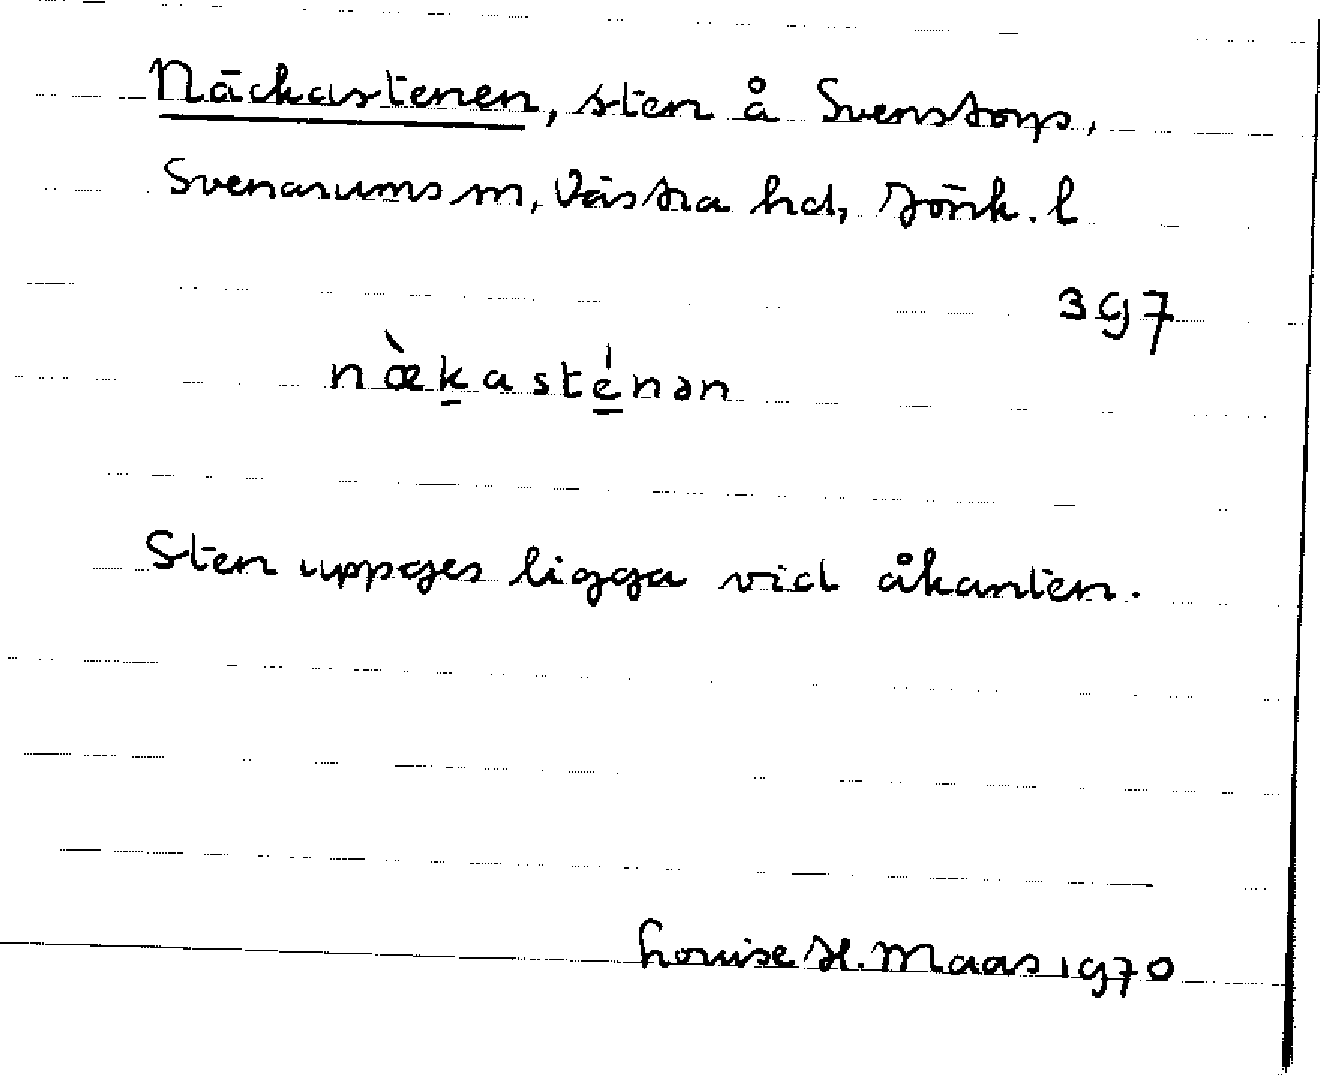 Näckastenen, sten å Svenstorps,
Svenarums sn, Västra hd, Jönk. l
397
nὰkasténən
Sten uppges ligga vid åkanten.
Louise H. Maas 1970